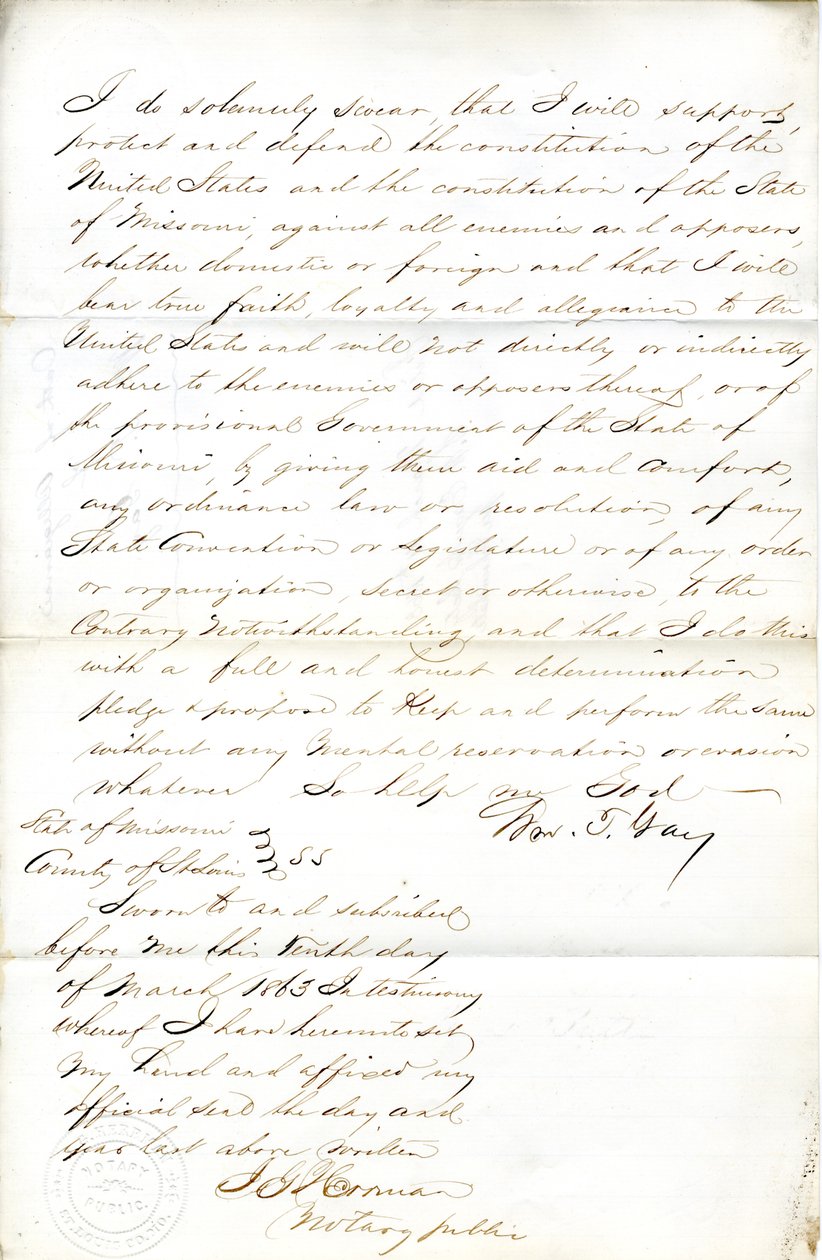 I do solemnly swear, that I will support,
protect and defend the constitution of the
United States and the constitution of the State
of Missouri, against all enemies and opposers,
whether domestic or foreign and that I will
bear true faith, loyalty and allegiance to the
United States and will not directly or indirectly
adhere to the enemies or opposers thereof, or of
the provisional Government of the State of
Missouri, by giving them aid and comfort,
any ordinance law or resolution, of any
State Convention or Legislature or of any order
or organization, secret or otherwise, to the
Contrary Notwithstanding, and that I do this
with a full and honest determination
pledge & propose to Keep and perform the same
without any Mental reservation or evasion
whatever So help me God
Wm. T. Gay
State of Missouri
County of St Louis } SS
Sworn to and subscribed
before Me this Tenth day
of March 1863 In testimony
whereof I have hereunto set
My hand and affixed my
official seal the day and
year last above written
NOTARY
PUBLIC.
ST. LOUIS CO. MO.
Notary public